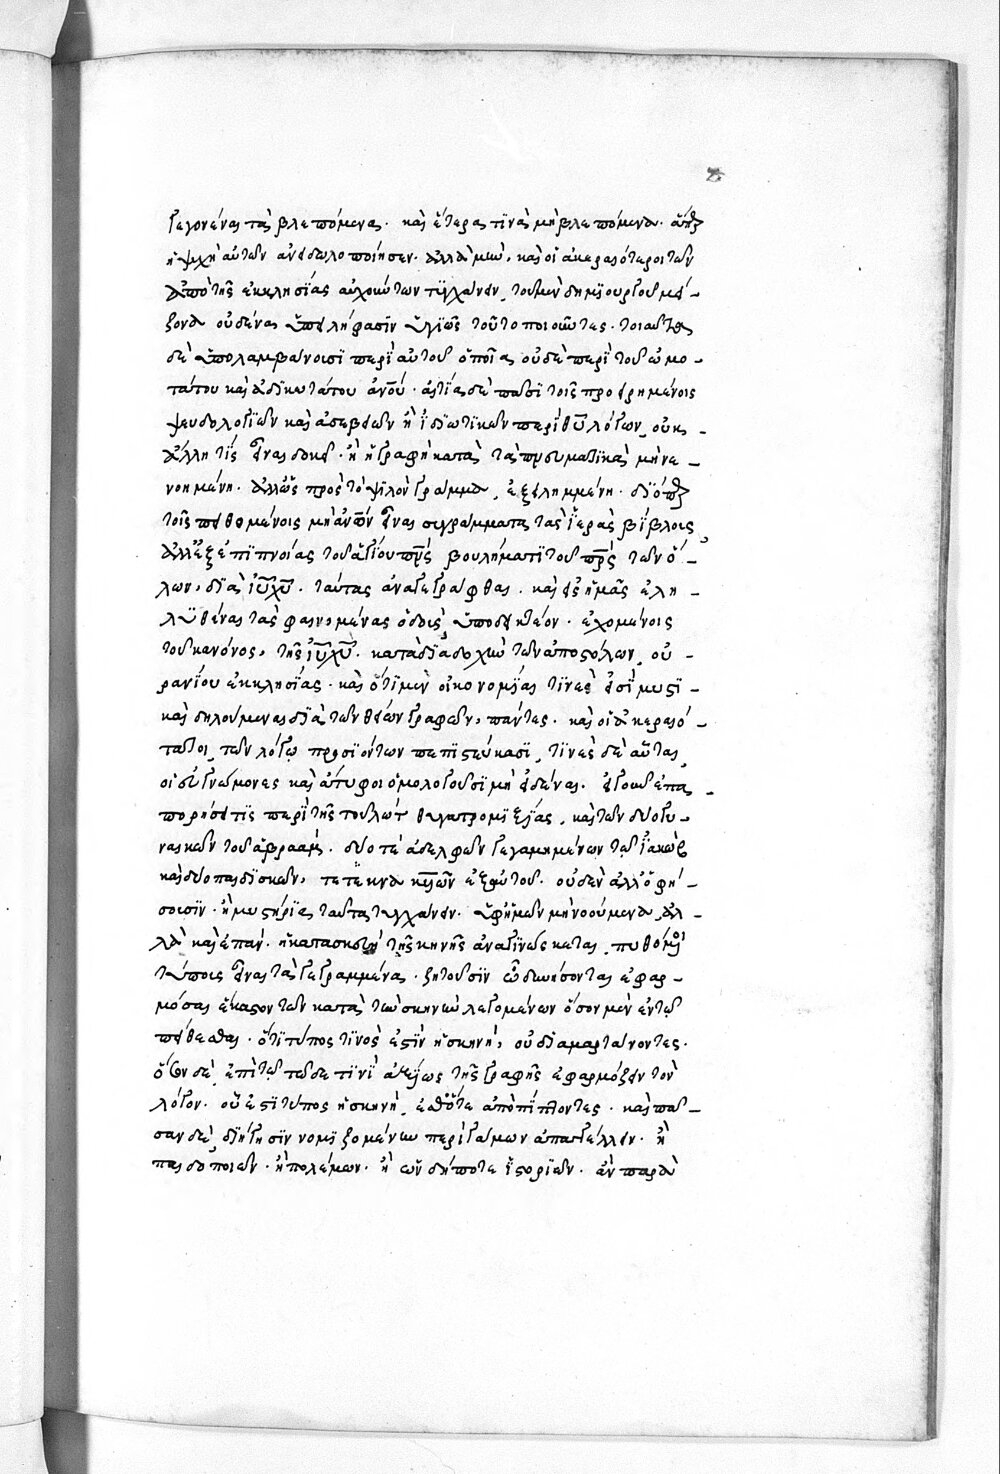 ζ
γεγονέναι τὰ βλεπόμενα. καὶ ἕτερα τϊνὰ μὴ βλεπόμενα. ἅπερ
ἡ ψυχὴ αὐτῶν ἀνειδωλοποίησεν. ἀλλὰ μὴν, καὶ οἱ ἀκεραιότεροι τῶν
ἀπὸ τῆς ἐκκλησίας αὐχούντων τϋγχάνειν, τοῦ μὲν δημϊουργοῦ μεί-
ζονα οὐδένα ὑπειλήφασϊν ὑγϊῶς τοῦτο ποιοῦντες. τοιαῦτα
δὲ ὑπολαμβάνουσϊ περὶ αὐτοῦ ὁποῖα οὐδὲ περὶ τοῦ ὠμο-
τάτου καὶ ἀδϊκωτάτου ἀνου. αἰτία δὲ πᾶσϊ τοῖς προειρημένοις
ψευδολογϊῶν καὶ ἀσεβειῶν ἢ ἰδϊωτϊκῶν περὶ θυ λόγων, οὐκ
ἄλλη τϊς εἶναι δοκεῖ. ἢ ἡ γραφὴ κατὰ τὰ πνευματϊκὰ μὴ νε-
νοημένη. ἀλλ' ὡς πρὸς τὸ ψϊλὸν γράμμα, ἐξειλημμένη. δϊόπερ
τοῖς πειθομένοις μὴ ἀνων εἶναι συγγράμματα τὰς ἱερὰς βίβλους,
ἀλλ' ἐξ ἐπϊπνοίας τοῦ ἁγίου πνς βουλήματϊ τοῦ πρς τῶν ὅ-
λων, δϊὰ ιυ χυ. ταύτας ἀναγεγράφθαι. καὶ εἰς ἡμᾶς ἐλη-
λϋθέναι τὰς φαινομένας ὁδοὺς ὑποδεικτέον. ἐχομένοις
τοῦ κανόνος, τῆς ιυ χυ. κατὰ δϊαδοχὴν τῶν ἀποστόλων, οὐ-
ρανίου ἐκκλησίας. καὶ ὅτϊ μὲν οἰκονομίαι τϊνές εἰσϊ μυστϊ-
καὶ δηλούμεναι δϊὰ τῶν θείων γραφῶν, πάντες. καὶ οἱ ἀκεραιό-
τατοι, τῶν λόγῳ προσϊόντων πεπϊστεύκασϊ, τϊνὲς δὲ αὗται,
οἱ εὐγνώμονες καὶ ἄτυφοι ὁμολογοῦσϊ μὴ εἰδέναι. εἰ γοῦν ἐπα-
πορήσει τϊς περὶ τῆς τοῦ λὼτ θυγατρομϊξίας, καὶ τῶν δύο γυ-
ναικῶν τοῦ ἀβραάμ. δύο τὲ ἀδελφῶν γεγαμημένων τῷ ἰακὼβ
καὶ δύο παιδϊσκῶν, τετεκνωκυιῶν ἐξ αὐτοῦ. οὐδὲν ἄλλο φή-
σουσϊν. ἢ μυστήρϊα ταῦτα τυγχάνειν. ὑφ' ἡμῶν μὴ νοούμενα, ἀλ-
λὰ καὶ ἐπὰν. ἡ κατασκευὴ τῆς σκηνῆς ἀναγϊνώσκηται, πειθόμενοι
τύπους εἶναι τὰ γεγραμμένα. ζητοῦσϊν ᾧ δυνήσονται ἐφαρ-
μόσαι ἕκαστον τῶν κατὰ τὴν σκηνὴν λεγομένων ὅσον μὲν ἐν τῷ
πείθεσθαι. ὅτϊ τύπος τϊνός ἐστϊν ἡ σκηνή, οὐ δϊαμαρτάνοντες.
ὅσον δὲ, ἐπὶ τῷ τῷδέ τϊνϊ ἀξίως τῆς γραφῆς ἐφαρμόζειν τὸν
λόγον. οὗ ἐστϊ τύπος ἡ σκηνή, ἐσθότε ἀποπίπτοντες. καὶ πᾶ-
σαν δὲ δϊήγησϊν νομϊζομένην περὶ γάμων ἀπαγγέλλειν. ἢ
παιδοποιϊῶν. ἢ πολέμων. ἢ ὧν δήποτε ἱστορϊῶν. ἂν παρὰ